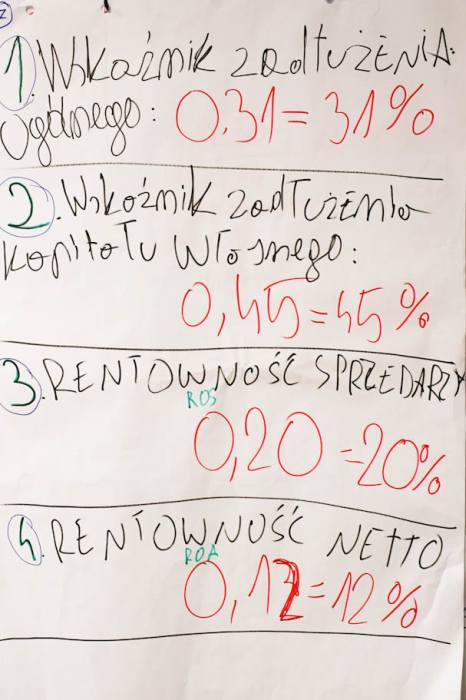 2
1. Wskaźnik zadłużenia
ogólnego: 0.31 = 31%
2. Wskaźnik zadłużenia
kapitału własnego:
0,45 = 45%
3. RENTOWNOŚĆ SPRZEDARZY
ROS
0,20 = 20%
4. RENTOWNOŚĆ NETTO
ROA
0,12 = 12%